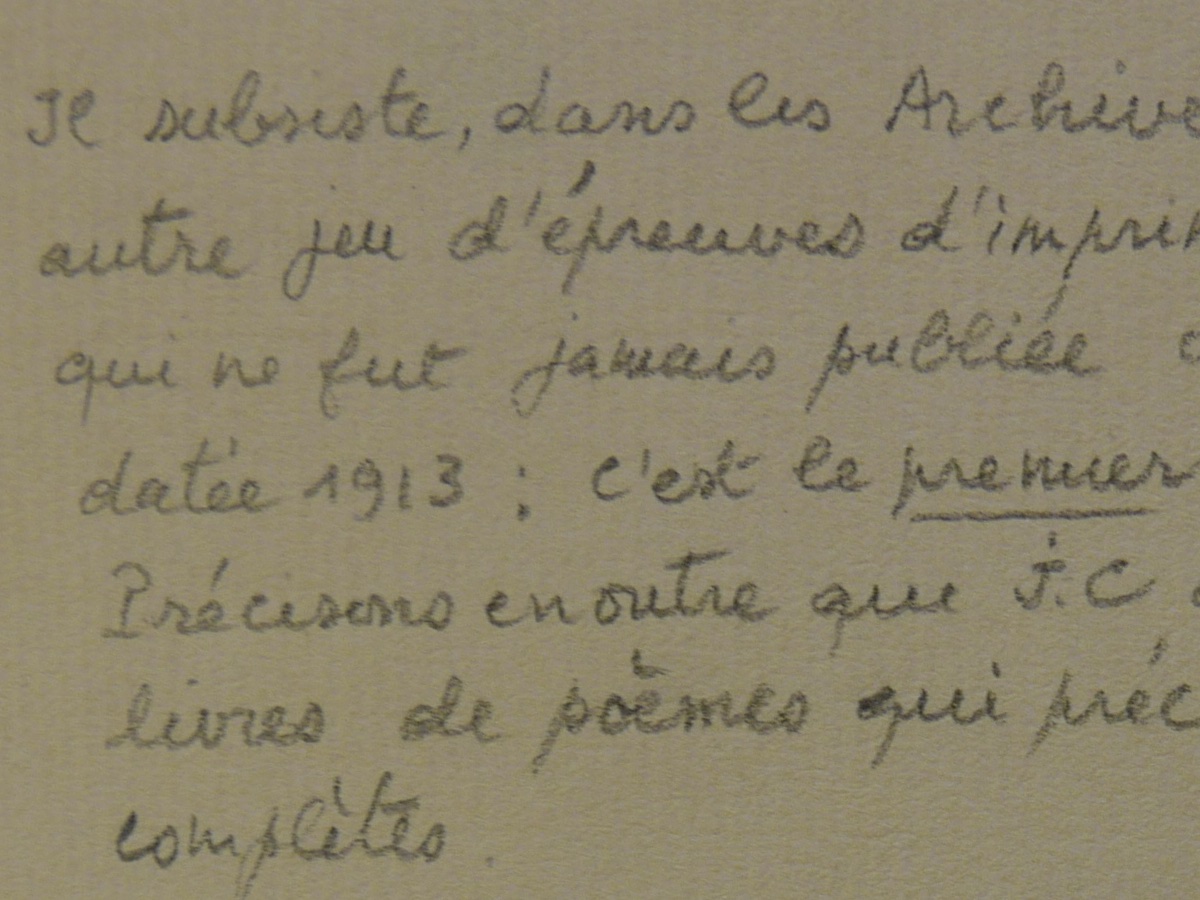 Il subsiste, dans les Archive
autre jeu d'épreuves d'imprim
qui ne fut jamais publiée
datée 1913 : c'est le premier
Précisons en outre que J.C
livres de poèmes qui préc
complètes.